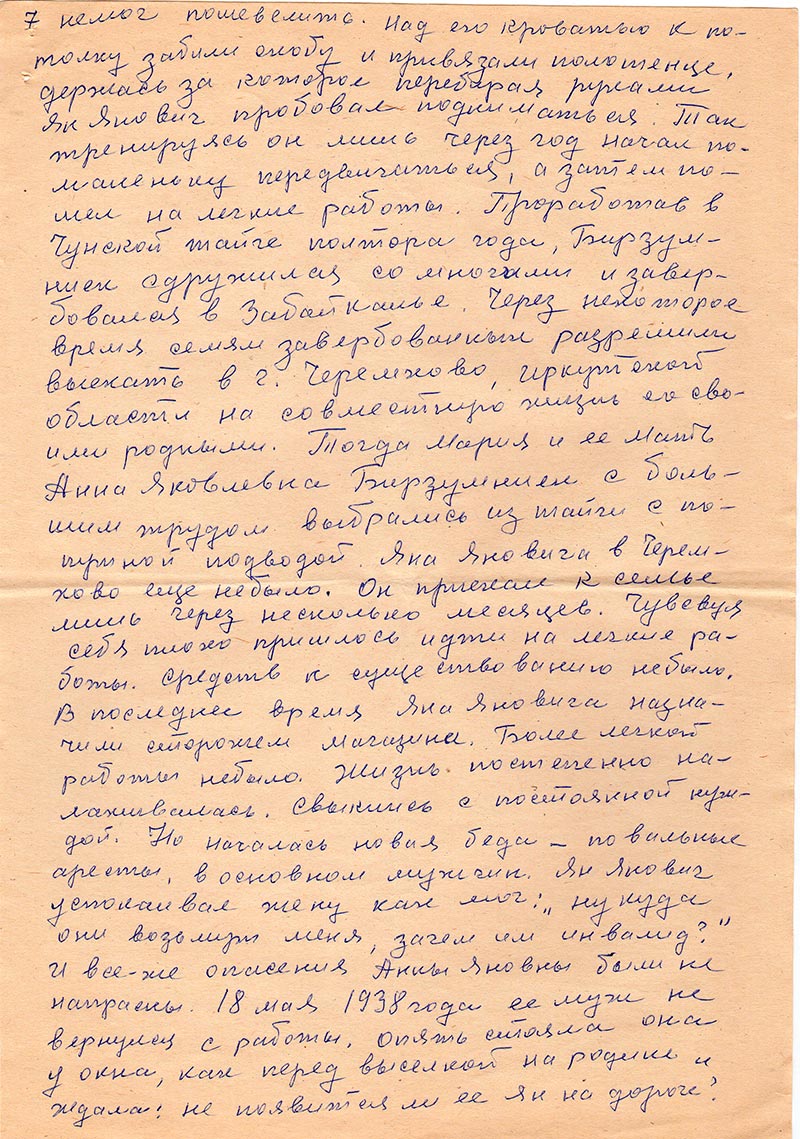 7 немог пошевелить. Над его кроватью к по-
толку забили скобу и привязали полотенце,
держась за которое перебирая руками
Ян Янович пробовал подниматься. Так
тренируясь он лишь через год начал по-
маленьку передвигаться, а затем по-
шел на легкие работы. Проработав в
Чунской тайге полтора года, Бирзум-
ниек сдружился со многими и завер-
бовался в Забайкалье. Через некоторое
время семям завербованных разрешили
выехать в г. Черемхово, иркутской
области на совместную жизнь со сво-
ими родными. Тогда Мария и ее мать
Анна Яковлевна Бирзумниек с боль-
шим трудом выбрались из тайги с по-
путной подводой. Яна Яновича в Черем-
хово еще небыло. Он приехал к семье
лишь через несколько месяцев. Чувсвуя
себя плохо пришлось идти на легкие ра-
боты. Средств к существованию небыло.
В последнее время Яна Яновича назна-
чили сторожем магазина. Более легкой
работы небыло. Жизнь постепенно на-
лаживалась. Свыклись с постоянной нуж-
дой. Но началась новая беда – повальные
аресты, в основном мужчин. Ян Янович
успокаивал жену как мог: „ну куда
они возьмут меня, зачем им инвалид?"
И все-же опасения Анны Яновны были не
напрасны. 18 мая 1938 года ее муж не
вернулся с работы. Опять стояла она
у окна, как перед высылкой на родине и
ждала: не появится ли ее Ян на дороге?